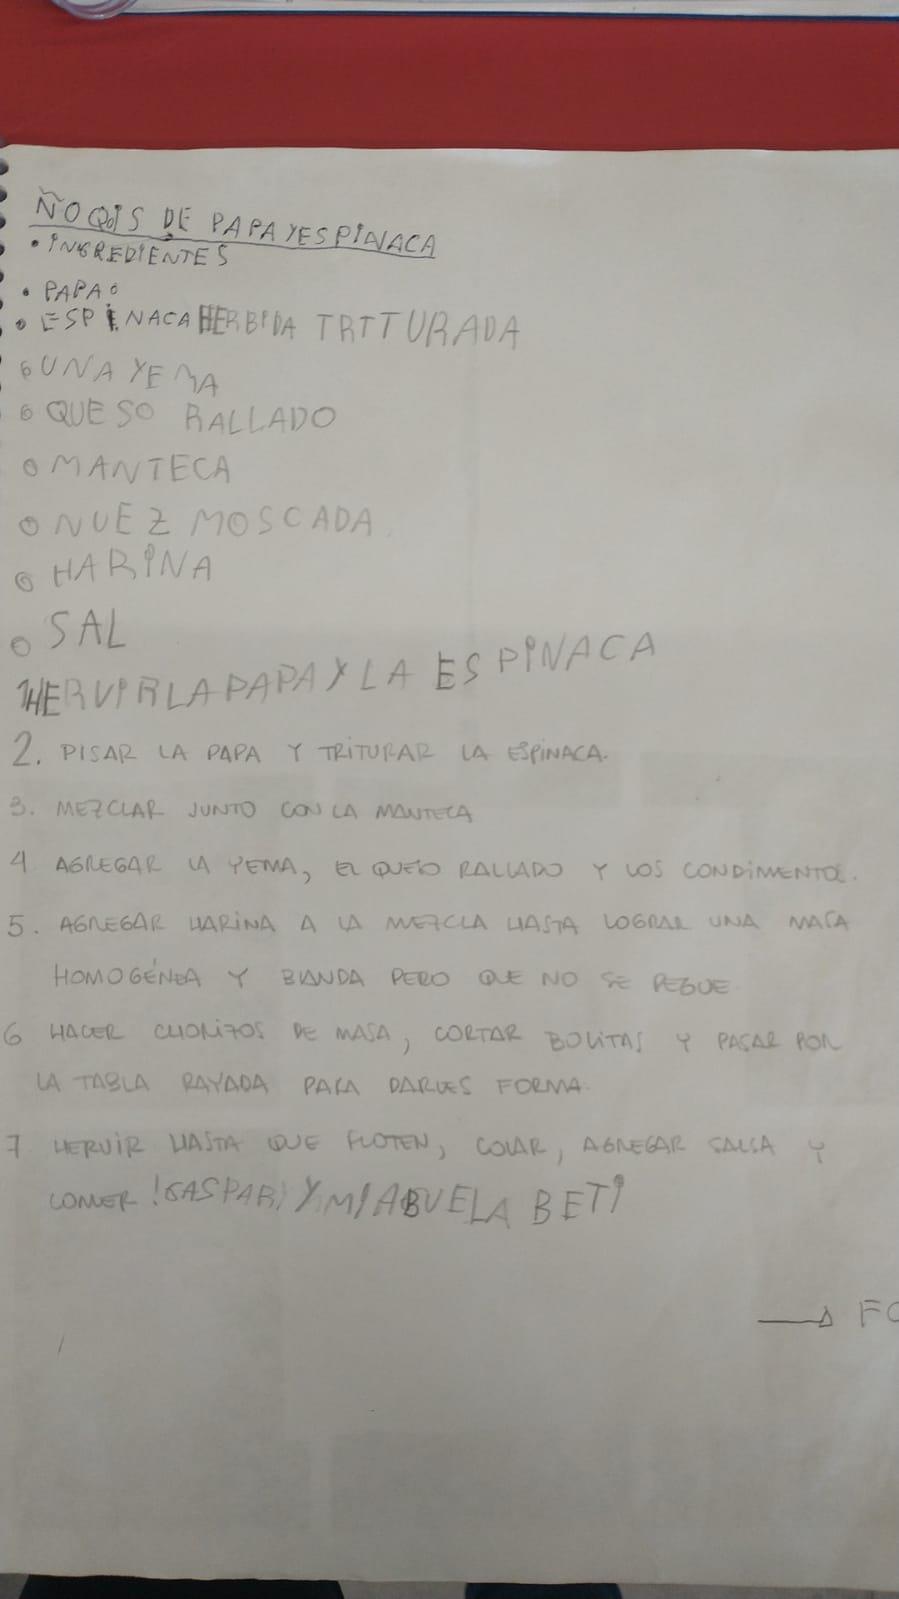 ÑOQIS DE PAPA Y ESPINACA
• INGREDIENTES
• PAPA
• ESPINACA HERBIDA TRITURADA
• UNA YEMA
• QUESO RALLADO
• MANTECA
• NUEZ MOSCADA
• HARINA
• SAL
1 HERVIR LA PAPA Y LA ESPINACA
2. PISAR LA PAPA Y TRITURAR LA ESPINACA.
3. MEZCLAR JUNTO CON LA MANTECA
4 AGREGAR LA YEMA, EL QUESO RALLADO Y LOS CONDIMENTOS.
5. AGREGAR HARINA A LA MEZCLA HASTA LOGRAR UNA MASA
HOMOGÉNEA Y BLANDA PERO QUE NO SE PEGUE
6 HACER CHORIZOS DE MASA, CORTAR BOLITAS Y PASAR POR
LA TABLA RAYADA PARA DARLES FORMA.
7 HERVIR HASTA QUE FLOTEN, COLAR, AGREGAR SALSA Y
COMER! GASPAR Y MI ABUELA BETI